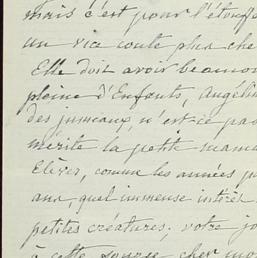 mais c'est pour l'étouffe
un vice coute plus che
Elle doit avoir beaucou
pleine d'Enfants, Angélin
des jumeaux, n'est-ce pas
mérite la petite maman
Elever, comme les années pa
ans, quel immense intérêt
petites créatures; votre jo
à cette source cher mon